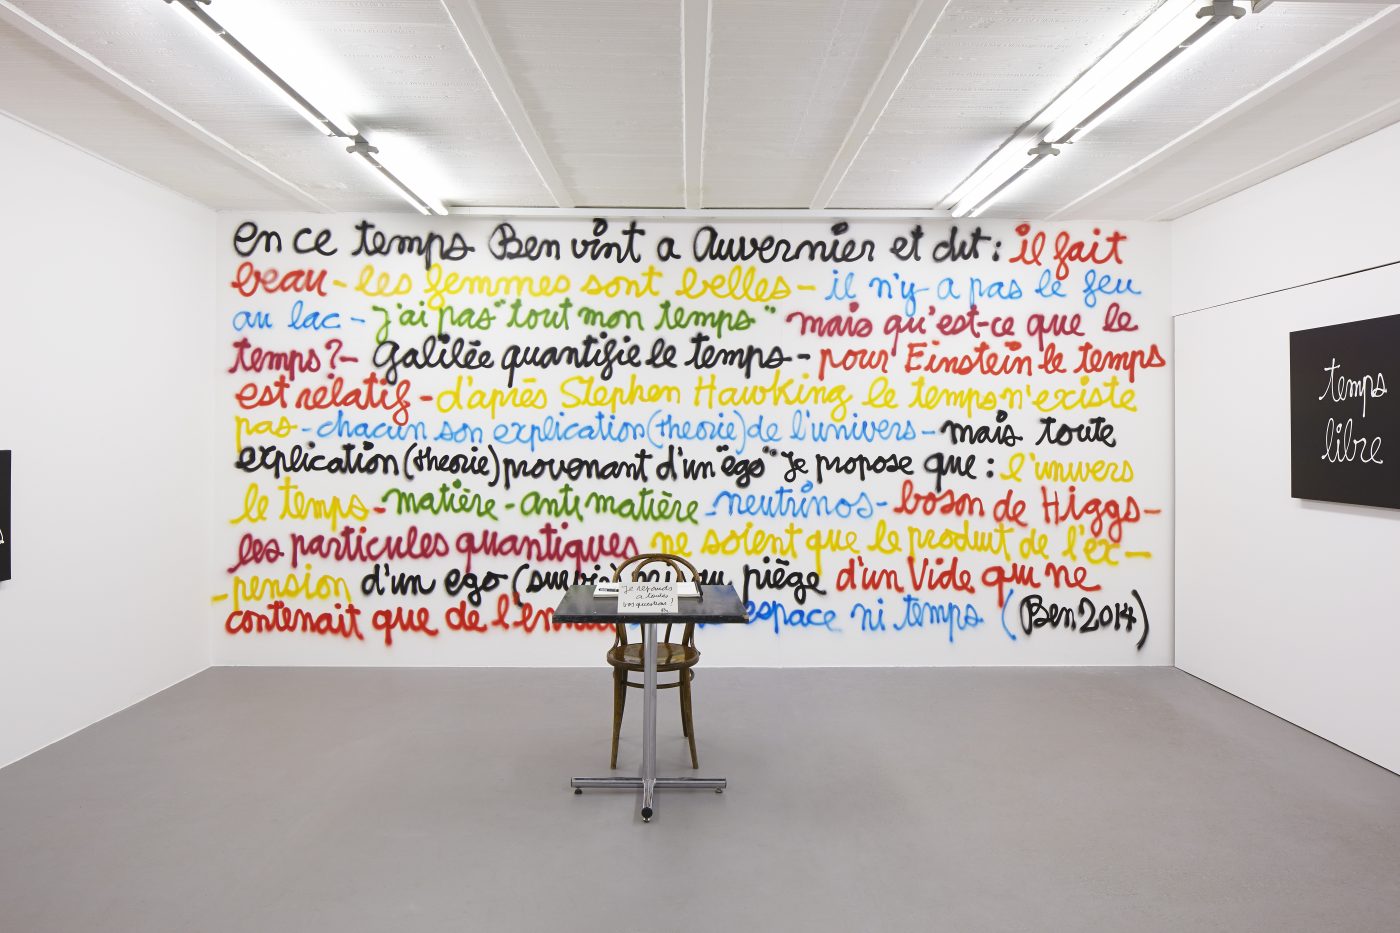 en ce temps Ben vint a Auvernier et dit : il fait
beau - les femmes sont belles - il n'y a pas le feu
au lac - j'ai pas "tout mon temps" mais qu'est-ce que le
temps? - Galilée quantifie le temps - pour Einstein le temps
est relatif - d'après Stephen Hawking le temps n'existe
pas - chacun son explication (theorie) de l'univers - mais toute
explication (theorie) provenant d'un "ego" je propose que : l'univers
le temps - matière - anti matière - neutrinos - boson de Higgs -
les particules quantiques ne soient que le produit de l'ex-
pension d'un ego (survie) piège d'un Vide qui ne
contenait que de l'en espace ni temps (Ben 2014)
je reponds
a toutes
vos questions !
temps
libre